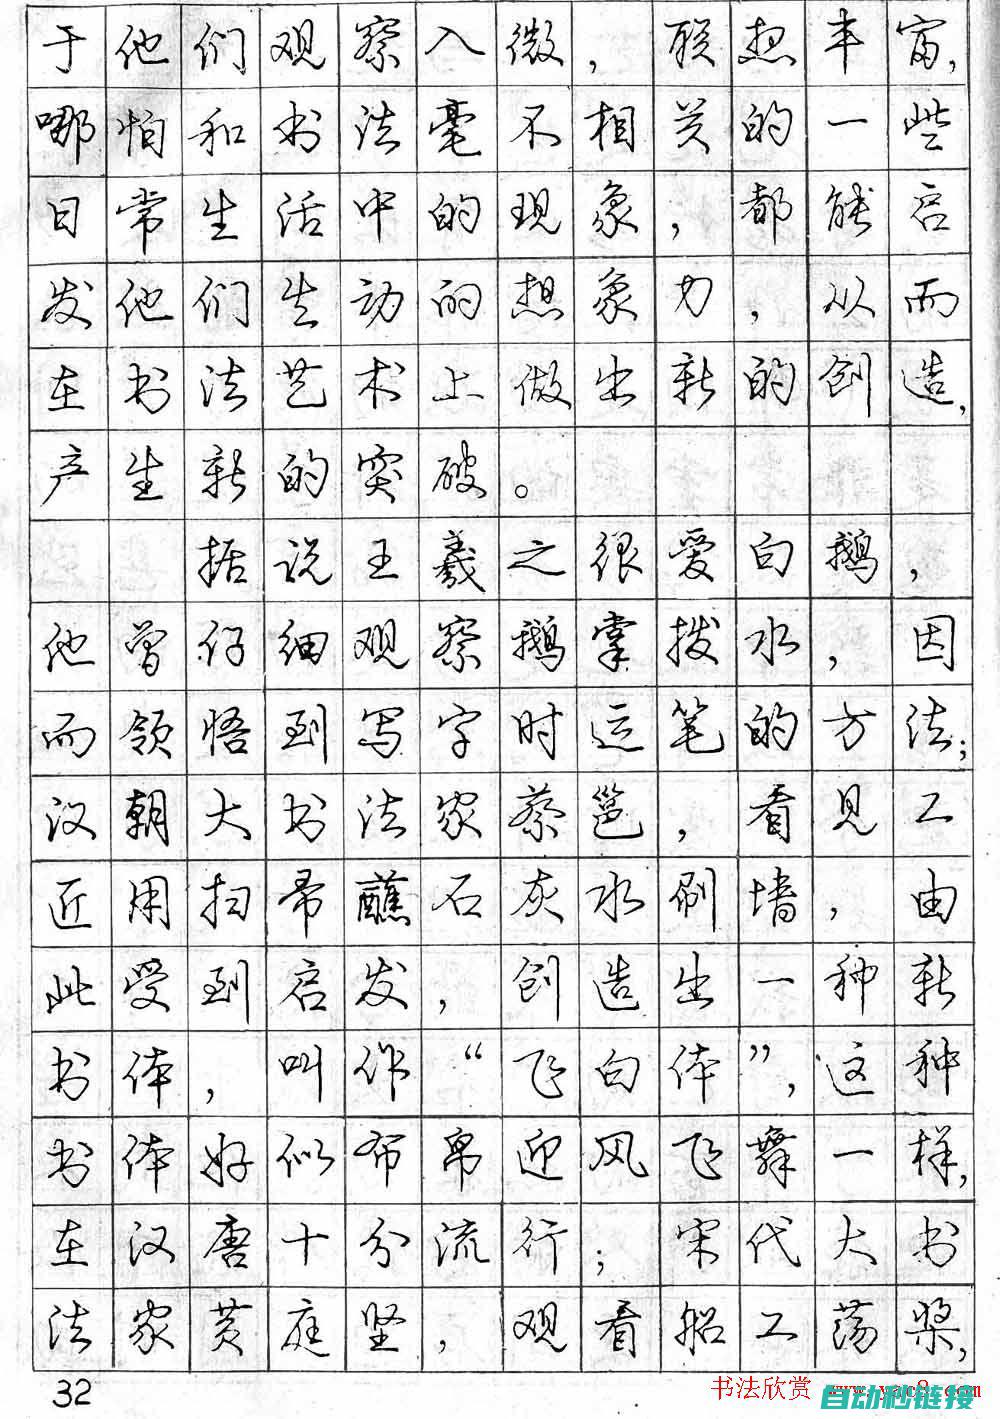 于他们观察入微，联想丰富，
哪怕和书法毫不相关的一些
日常生活中的现象，都能启
发他们生动的想象力，从而
在书法艺术上做出新的创造，
产生新的突破。
据说王羲之很爱白鹅，
他曾仔细观察鹅掌拨水，因
而领悟到写字时运笔的方法；
汉朝大书法家蔡邕，看见工
匠用扫帚蘸石灰水刷墙，由
此受到启发，创造出一种新
书体，叫作“飞白体”，这种
书体好似布帛迎风飞舞一样，
在汉唐十分流行；宋代大书
法家黄庭坚，观看船工荡桨，
32
书法欣赏 www.yac8.com
自动秒链接